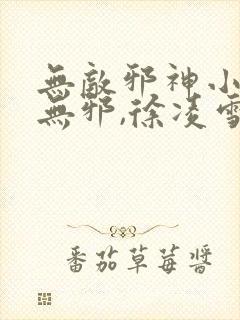 無敵邪神小
無邪,徐凌雪
番茄草莓醬